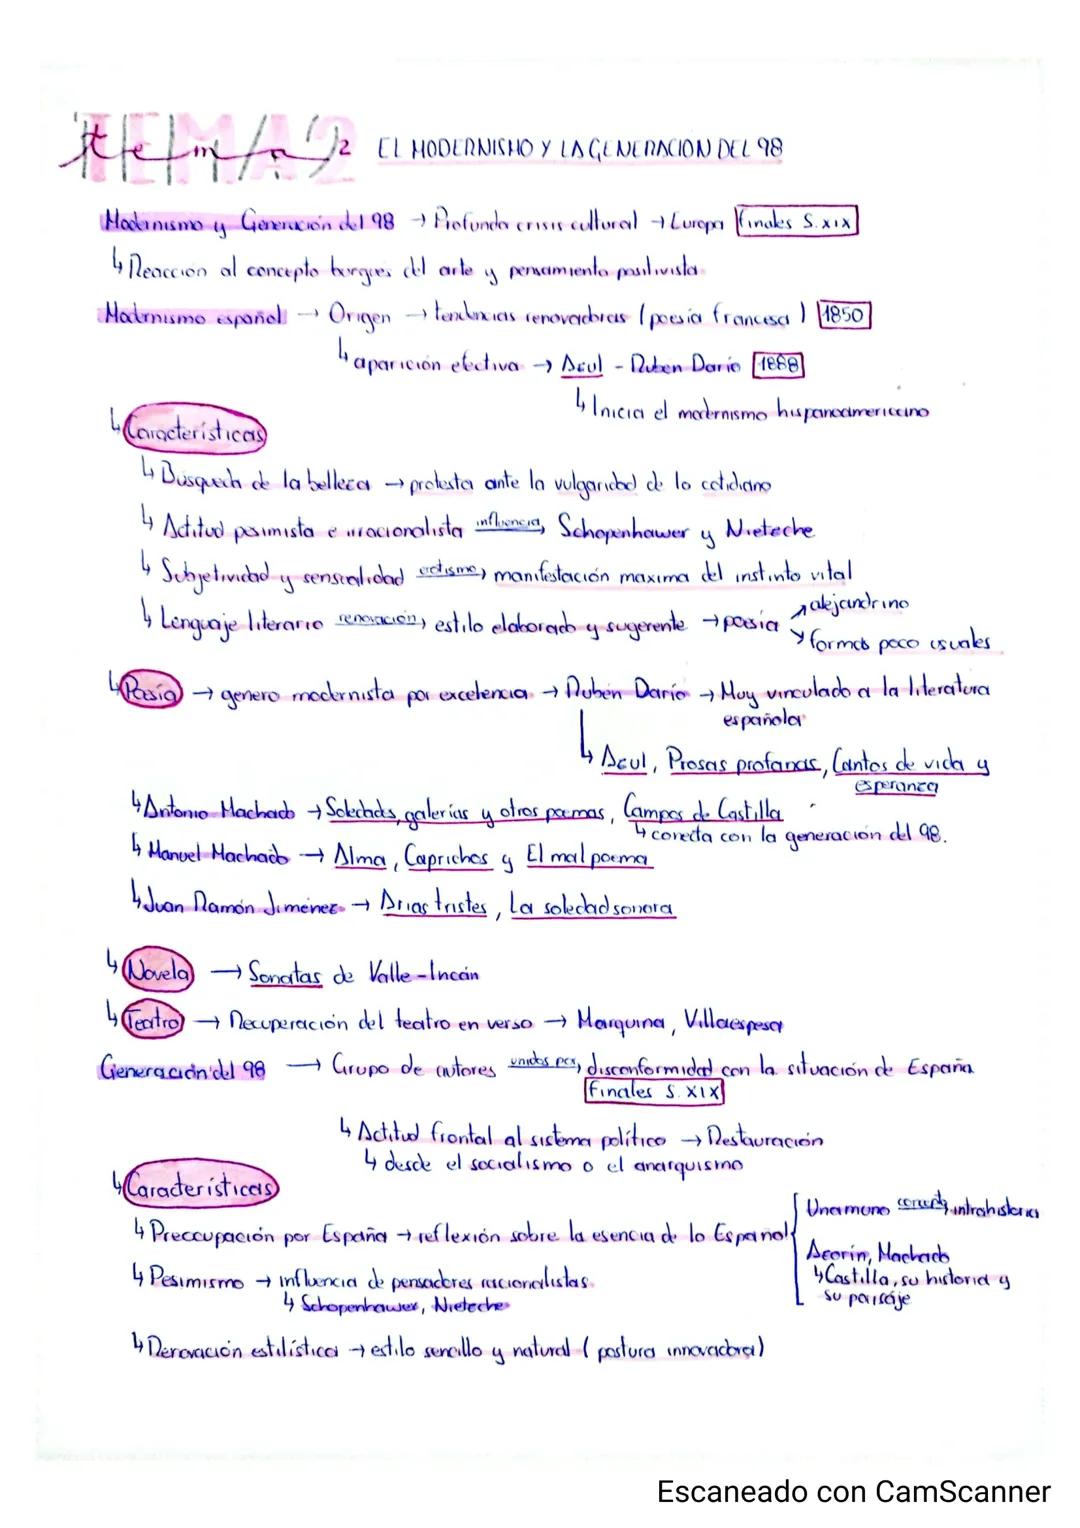 tema 2 EL MODERNISMO Y LA GENERACION DEL 98
Modernismo y Generación del 98 → Profunda crisis cultural → Europa finales S.XIX
↳ Reacción al concepto burgues del arte y pensamiento positivista
Modernismo español → Origen → tendencias renovadoras (poesía francesa) 1850
↳ aparición efectiva → Azul - Ruben Darío 1888
↳ Inicia el modernismo hispanoamericano
↳ Características
↳ Búsqueda de la belleza → protesta ante la vulgaridad de lo cotidiano
↳ Actitud pesimista e irracionalista influencia→ Schopenhawer y Nieteche
↳ Subjetividad y sensualidad erotismo→ manifestación maxima del instinto vital
↳ Lenguaje literario renovación→ estilo elaborado y sugerente → poesía ↗ alejandrino
↘ formas poco usuales
↳ Poesía → genero modernista por excelencia → Rubén Darío → Muy vinculado a la literatura
española
↳ Azul, Prosas profanas, Cantos de vida y
esperanza
↳ Antonio Machado → Soledades, galerías y otros poemas, Campos de Castilla
↳ conecta con la generación del 98.
↳ Manuel Machado → Alma, Caprichos y El mal poema
↳ Juan Ramón Jiménez → Arias tristes, La soledad sonora
↳ Novela → Sonatas de Valle-Inclán
↳ Teatro → Recuperación del teatro en verso → Marquina, Villaespesa
Generación del 98 → Grupo de autores unidos por→ disconformidad con la situación de España
finales S. XIX
↳ Actitud frontal al sistema político → Restauración
↳ desde el socialismo o el anarquismo
↳ Características
↳ Preocupación por España → reflexión sobre la esencia de lo Español
Unamuno concepto→ intrahistoria
Azorín, Machado
↳ Castilla, su historia y
su paisaje
↳ Pesimismo → influencia de pensadores racionalistas
↳ Schopenhawer, Nieteche
↳ Renovación estilística → estilo sencillo y natural (postura innovadora)
Escaneado con CamScanner